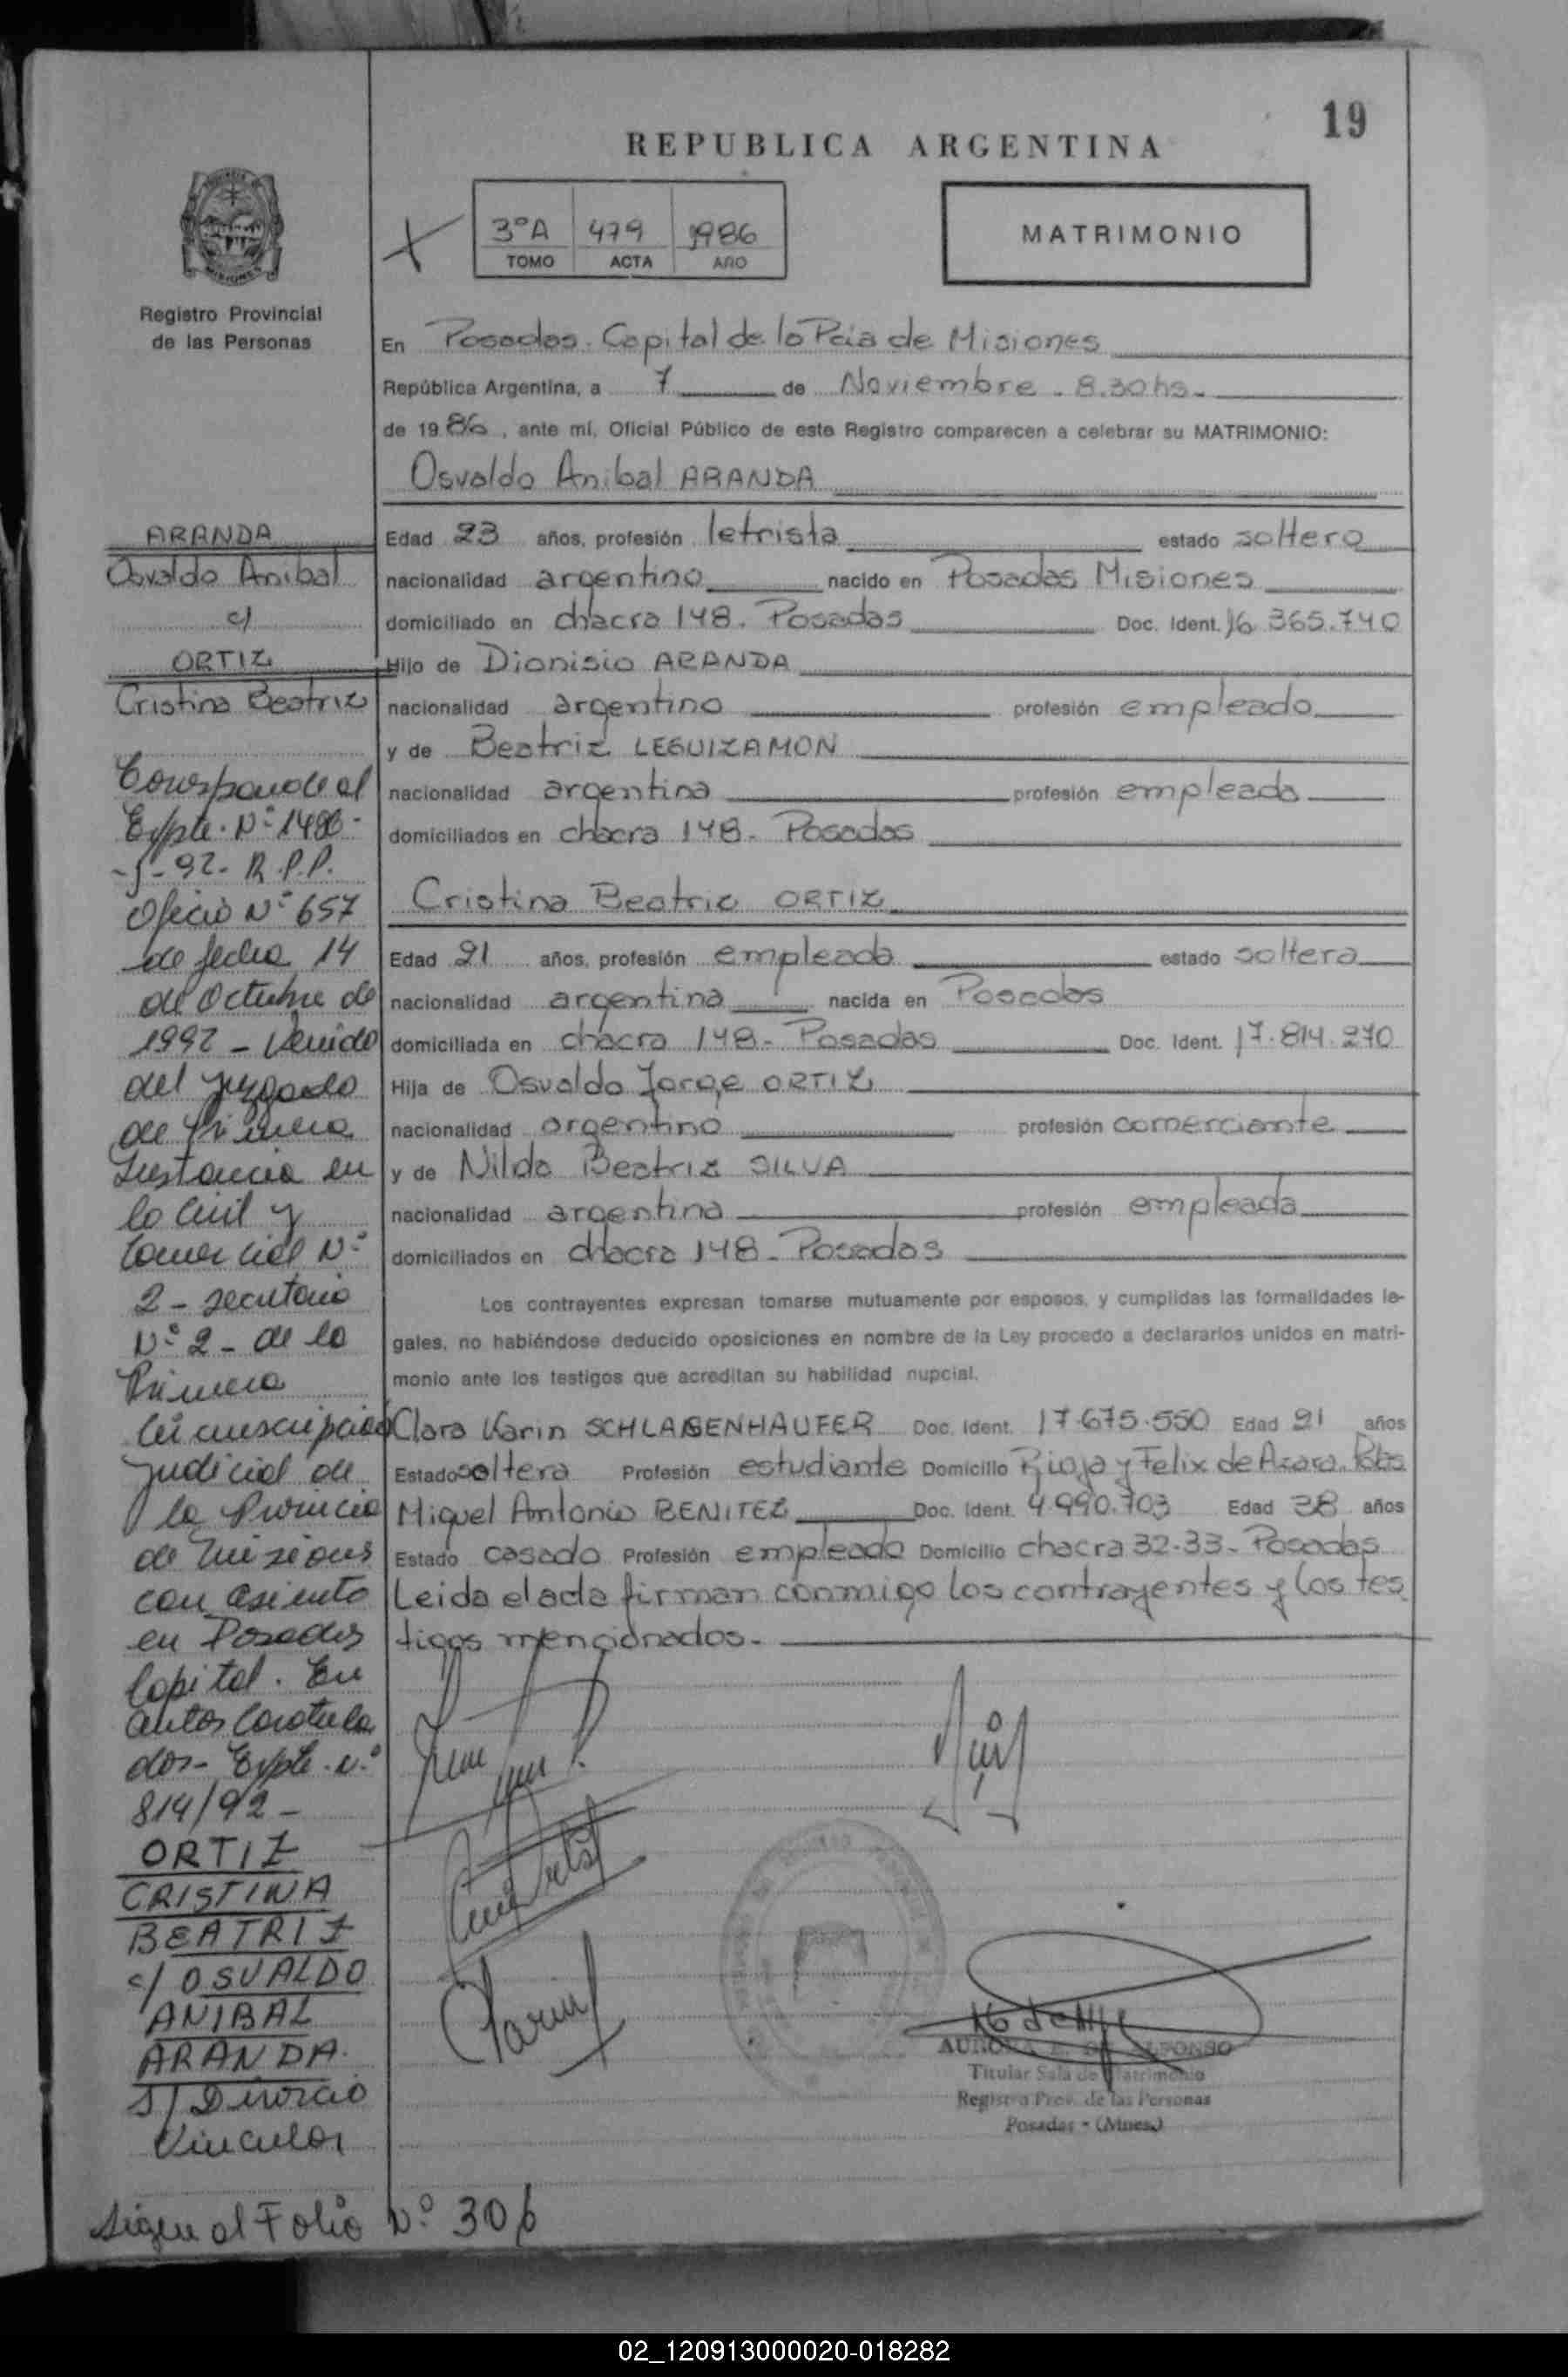 19
REPUBLICA ARGENTINA
3ºA 479 1986
TOMO ACTA AÑO
MATRIMONIO
Registro Provincial
de las Personas
En Posadas. Capital de la Pcia de Misiones
República Argentina, a 7 de Noviembre - 8.30 hs.
de 1986, ante mí, Oficial Público de este Registro comparecen a celebrar su MATRIMONIO:
Osvaldo Anibal ARANDA
Edad 23 años, profesión letrista estado soltero
nacionalidad argentino nacido en Posadas Misiones
domiciliado en chacra 148. Posadas Doc. Ident. 16.365.740
Hijo de Dionisio ARANDA
nacionalidad argentino profesión empleado
y de Beatriz LEGUIZAMON
nacionalidad argentina profesión empleada
domiciliados en chacra 148. Posadas
Cristina Beatriz ORTIZ
Edad 21 años, profesión empleada estado soltera
nacionalidad argentina nacida en Posadas
domiciliada en chacra 148. Posadas Doc. Ident. 17.814.270
Hija de Osvaldo Jorge ORTIZ
nacionalidad argentino profesión comerciante
y de Nilda Beatriz SILVA
nacionalidad argentina profesión empleada
domiciliados en chacra 148. Posadas
Los contrayentes expresan tomarse mutuamente por esposos, y cumplidas las formalidades le-
gales, no habiéndose deducido oposiciones en nombre de la Ley procedo a declararlos unidos en matri-
monio ante los testigos que acreditan su habilidad nupcial.
Clara Karin SCHLAGENHAUFER Doc. Ident. 17.675.550 Edad 21 años
Estado soltera Profesión estudiante Domicilio Rioja y Felix de Azara. Pdas
Miguel Antonio BENITEZ Doc. Ident. 4.990.703 Edad 38 años
Estado casado Profesión empleado Domicilio chacra 32-33. Posadas
Leida el acta firman conmigo los contrayentes y los tes
tigos mencionados.
ARANDA
Osvaldo Anibal
c/
ORTIZ
Cristina Beatriz
Corresponde al
Expte. Nº 1486-
-J-92- R.P.P.
Oficio Nº 657
de fecha 14
de Octubre de
1992 - Venido
del juzgado
de Primera
Instancia en
lo Civil y
Comercial Nº
2 - secretaria
Nº 2 - de la
Primera
Circunscripcion
Judicial de
la Provincia
de Misiones
con asiento
en Posadas
Capital. En
autos Caratula
dos- Expte. Nº
814/92 -
ORTIZ
CRISTINA
BEATRIZ
c/ OSVALDO
ANIBAL
ARANDA.
S/ Divorcio
Vincular
Sigue al Folio Nº 306
AURORA E. DE ALFONSO
Titular Sala de Matrimonio
Registro Prov. de las Personas
Posadas - (Mnes.)
02_120913000020-018282